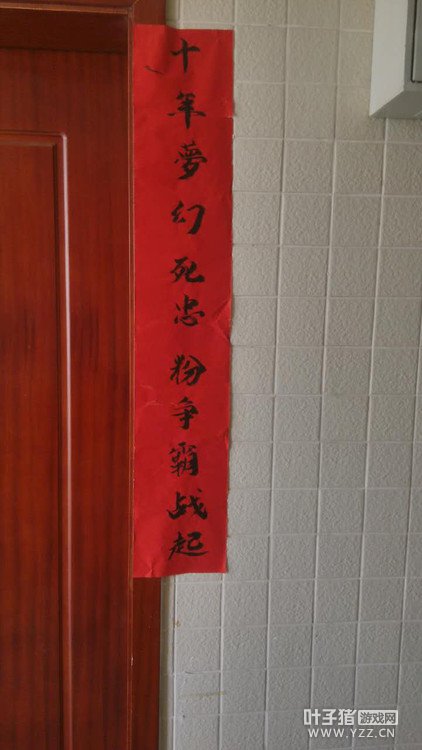 十年夢幻死忠粉争霸战起
叶子猪游戏网
WWW.YZZ.CN